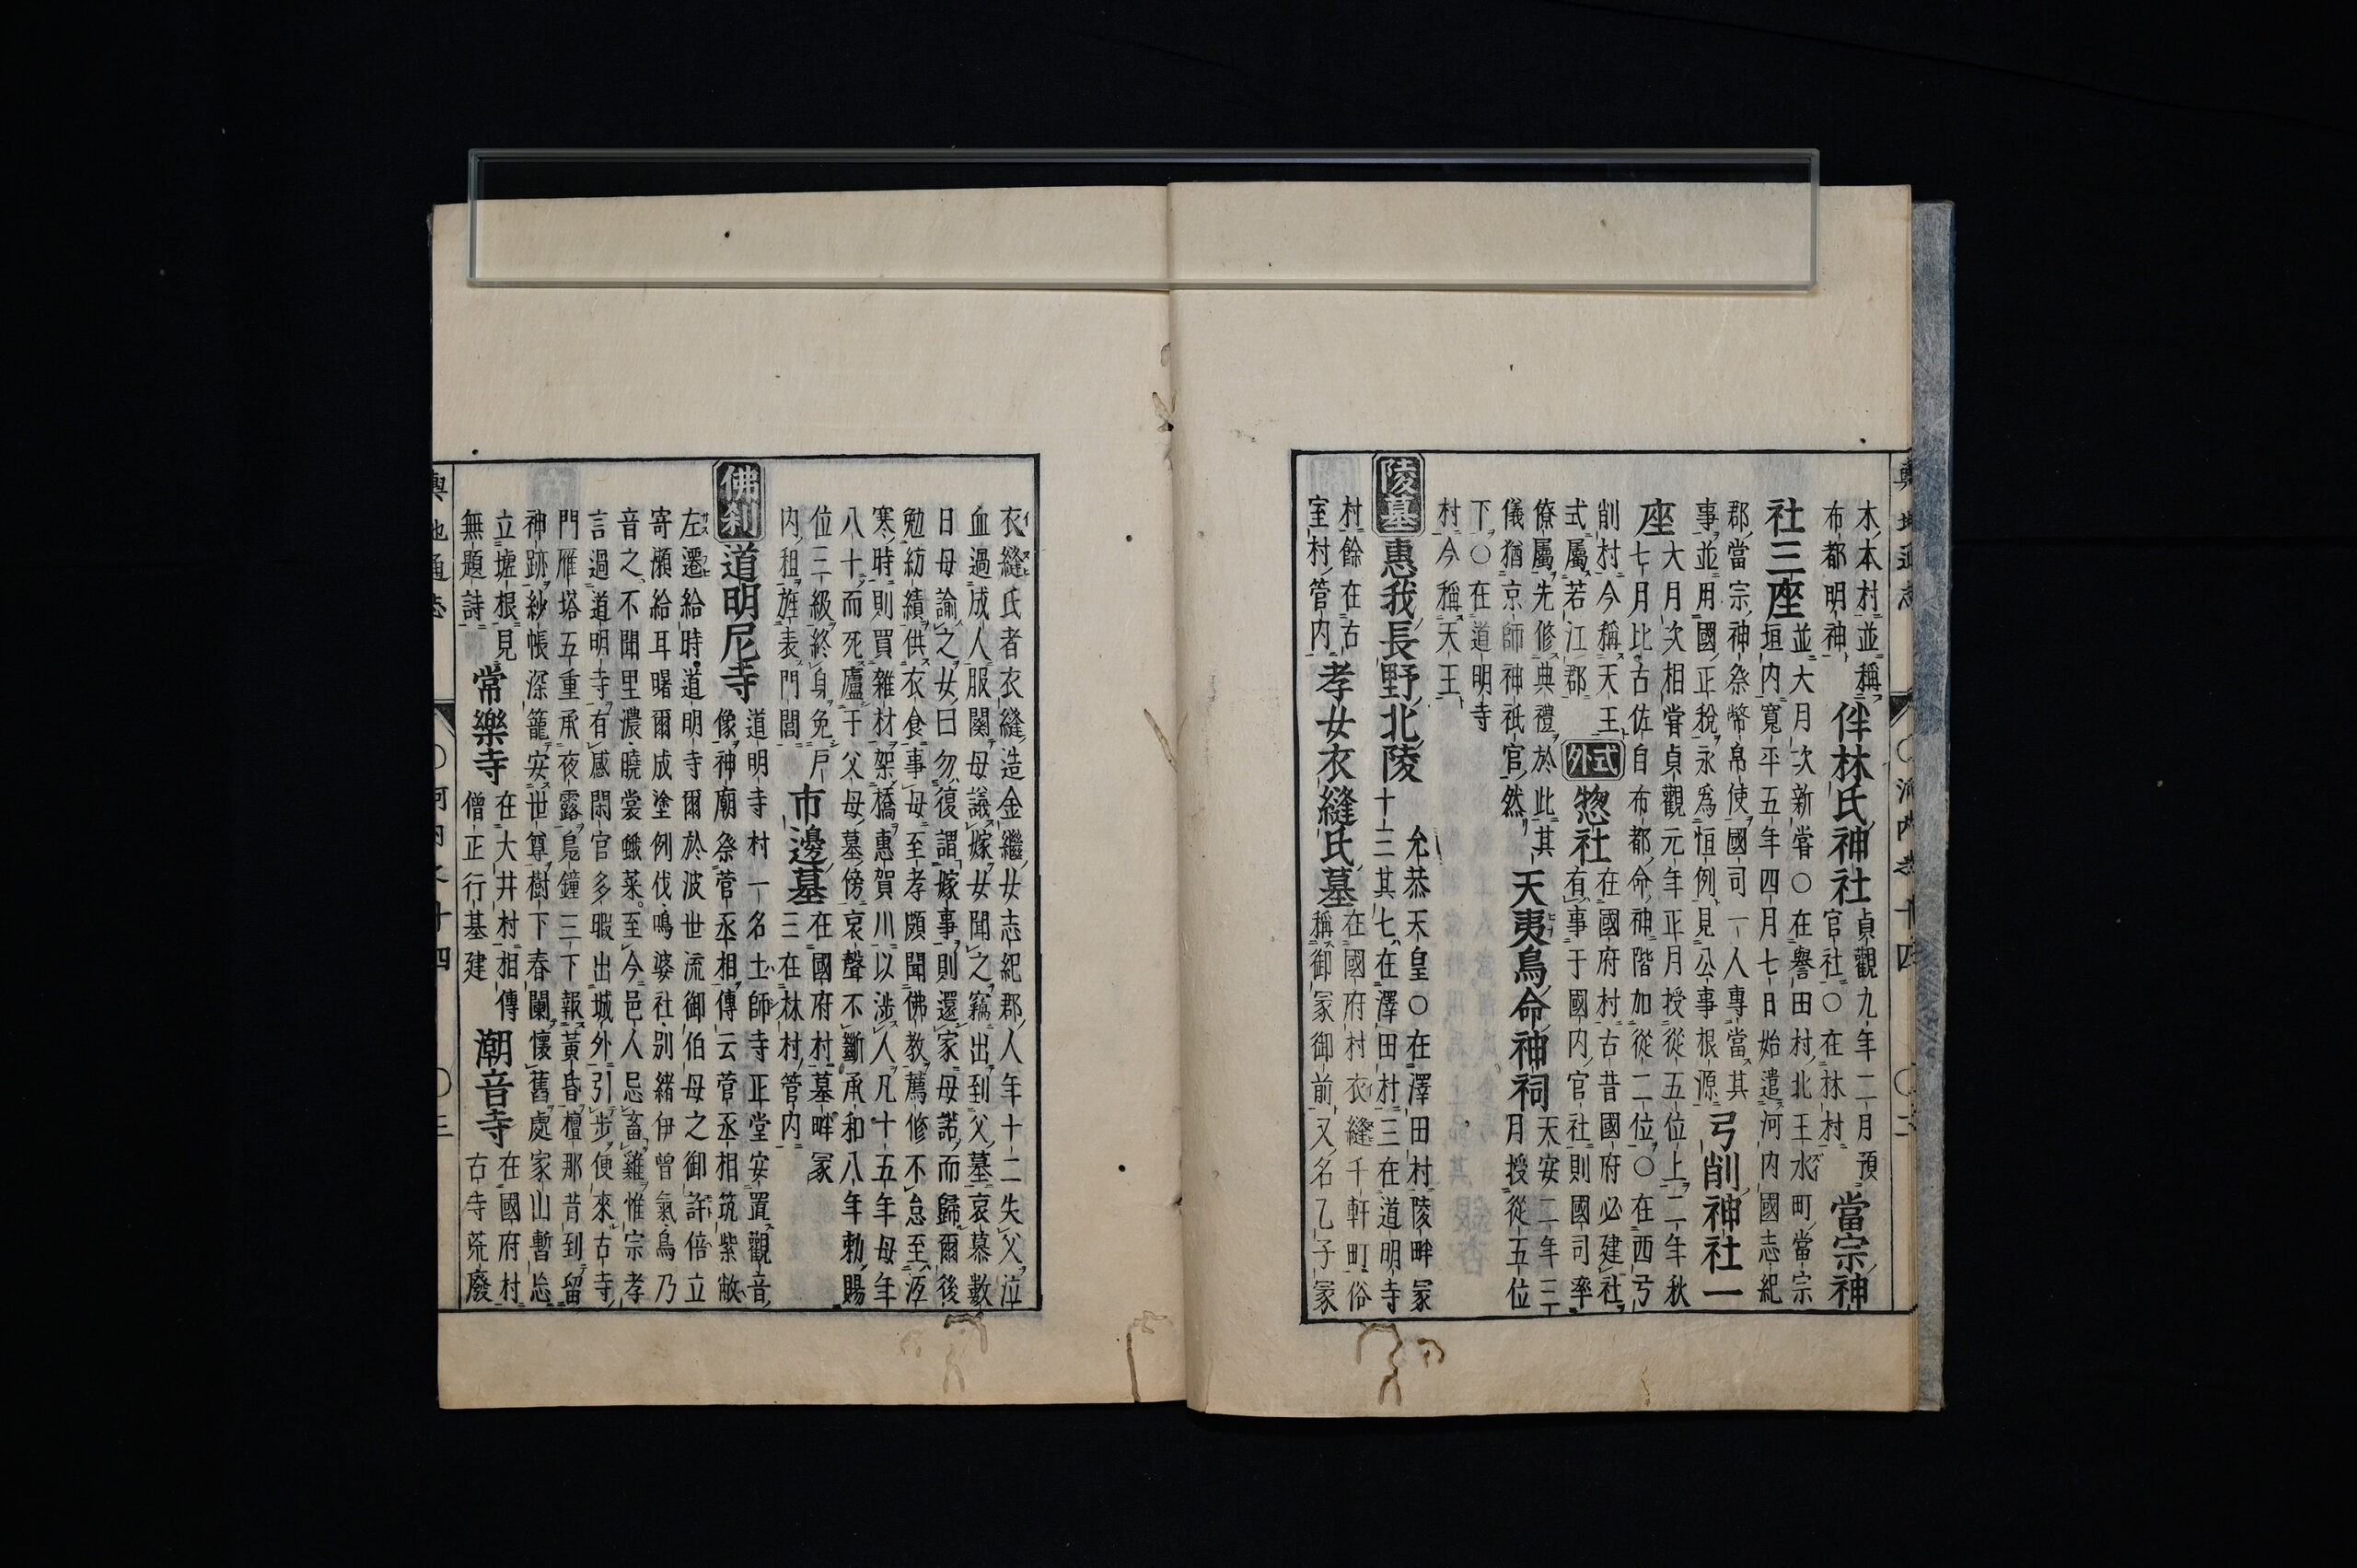 木本村並稱
布都明神
伴林氏神社
貞觀九年二月預
官社○在林村
當宗神
社三座
並大月次新甞○在譽田村北王水町當宗
垣内寬平五年四月七日始遣河内國志紀
郡當宗神祭幣帛使國司一人專當其
事並用國正稅永爲恒例見公事根源
弓削神社一
座
大月次相甞貞觀元年正月授從五位上二年秋
七月比古佐自布都命神階加從二位○在西弓
削村今稱天王
式屬若江郡
式外
惣社
在國府村古昔國府必建社
有事于國内官社則國司率
僚屬先修典禮於此其
儀猶京師神祇官然
天夷鳥命神祠
天安二年三
月授從五位
下○在道明寺
村今稱天王
陵墓
惠我長野北陵
允恭天皇○在澤田村陵畔冢
十三其七在澤田村三在道明寺
村餘在古
室村管内
孝女衣縫氏墓
在國府村衣縫千軒町俗
稱御冢御前又名乙子冢
衣縫氏者衣縫造金繼女志紀郡人年十二失父泣
血過成人服闋母議嫁女聞之竊出到父墓哀慕數
日母諭之女曰勿復謂嫁事則還家母諾而歸爾後
勉紡績供衣食事母至孝頗聞佛教薦修不怠至冱
寒時則買雜材架橋惠賀川以涉人凡十五年母年
八十而死廬于父母墓傍哀聲不斷承和八年勅賜
位三級終身免戸
内租旌表門閭
市邊墓
在國府村墓畔冢
三在林村管内
佛刹
道明尼寺
道明寺村一名土師寺正堂安置觀音
像神廟祭菅丞相傳云菅丞相筑紫敝
左遷給時道明寺爾於波世流御伯母之御許倍立
寄瀬給耳曙爾成塗例伐鳴婆社別緒伊曾氣鳥乃
音之不聞里濃曉裳蛾菜至今邑人忌畜雞惟宗孝
言過道明寺有感閑官多暇出城外引步便來古寺
門雁塔五重承夜露鳧鐘三下報黄昏檀那昔到留
神跡紗帳深籠安世尊樹下春闌懷舊處家山暫忘
立墟根見
無題詩
常樂寺
在大井村相傳
僧正行基建
潮音寺
在國府村
古寺荒廢